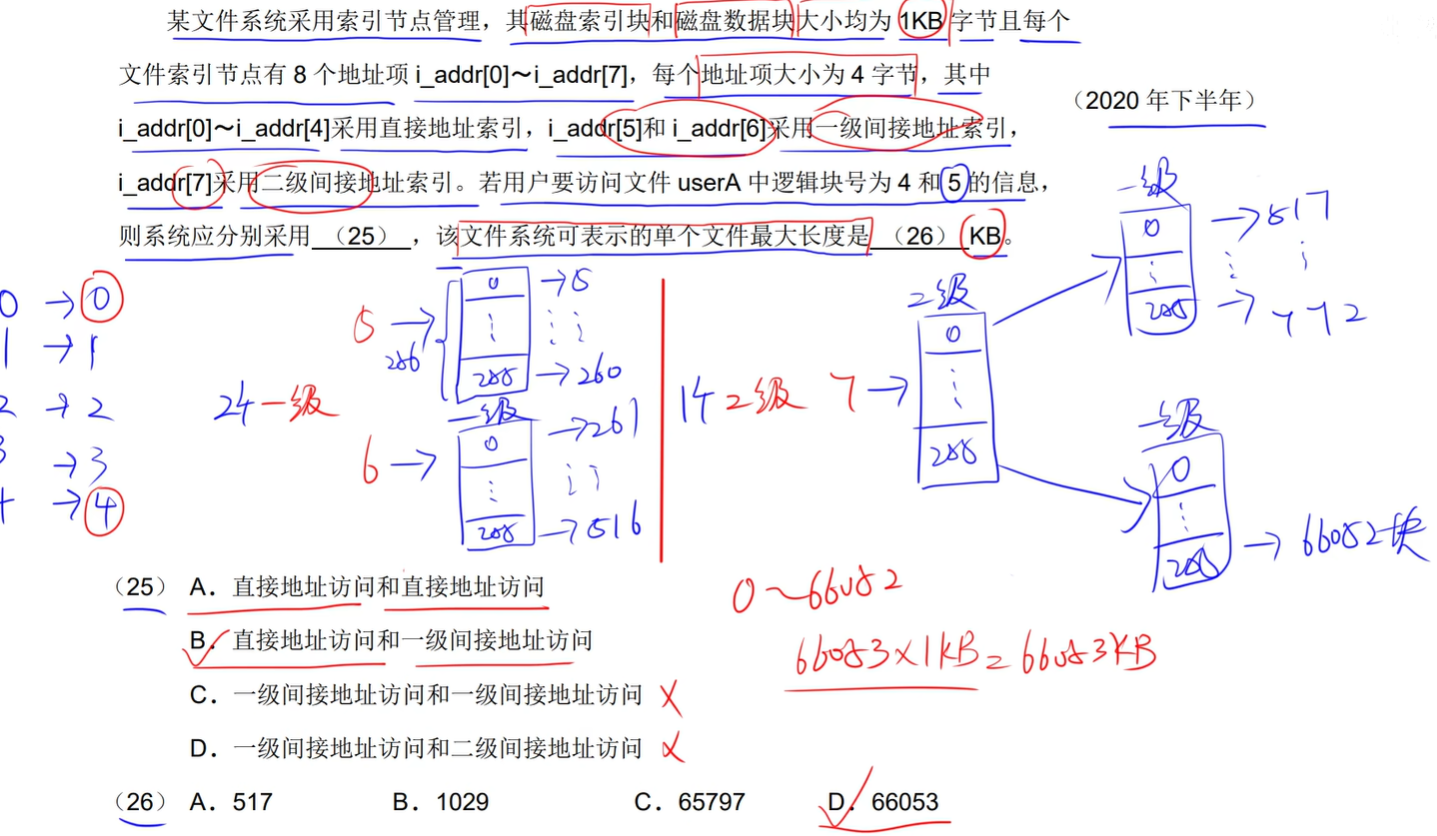 某文件系统采用索引节点管理，其磁盘索引块和磁盘数据块大小均为 1KB 字节且每个
文件索引节点有 8 个地址项 i_addr[0]～i_addr[7]，每个地址项大小为 4 字节，其中
（2020 年下半年）
i_addr[0]～i_addr[4]采用直接地址索引，i_addr[5]和 i_addr[6]采用一级间接地址索引，
i_addr[7]采用二级间接地址索引。若用户要访问文件 userA 中逻辑块号为 4 和 5 的信息，
则系统应分别采用 （25） ，该文件系统可表示的单个文件最大长度是 （26） KB。
0 → 0
1 → 1
2 → 2
3 → 3
→ 4
24 一级
5 →
256
0 → 5
⋮ ⋮
255 → 260
一级
6 →
0 → 261
⋮ ⋮
255 → 516
14 2级 7 →
2级
0
⋮
255
一级
0 → 517
⋮ ⋮
255 → 772
一级
0
⋮
255 → 66052块
（25） A．直接地址访问和直接地址访问
B．直接地址访问和一级间接地址访问
C．一级间接地址访问和一级间接地址访问 ×
D．一级间接地址访问和二级间接地址访问 ×
0～66052
66053×1KB=66053KB
（26） A．517 B．1029 C．65797 D．66053